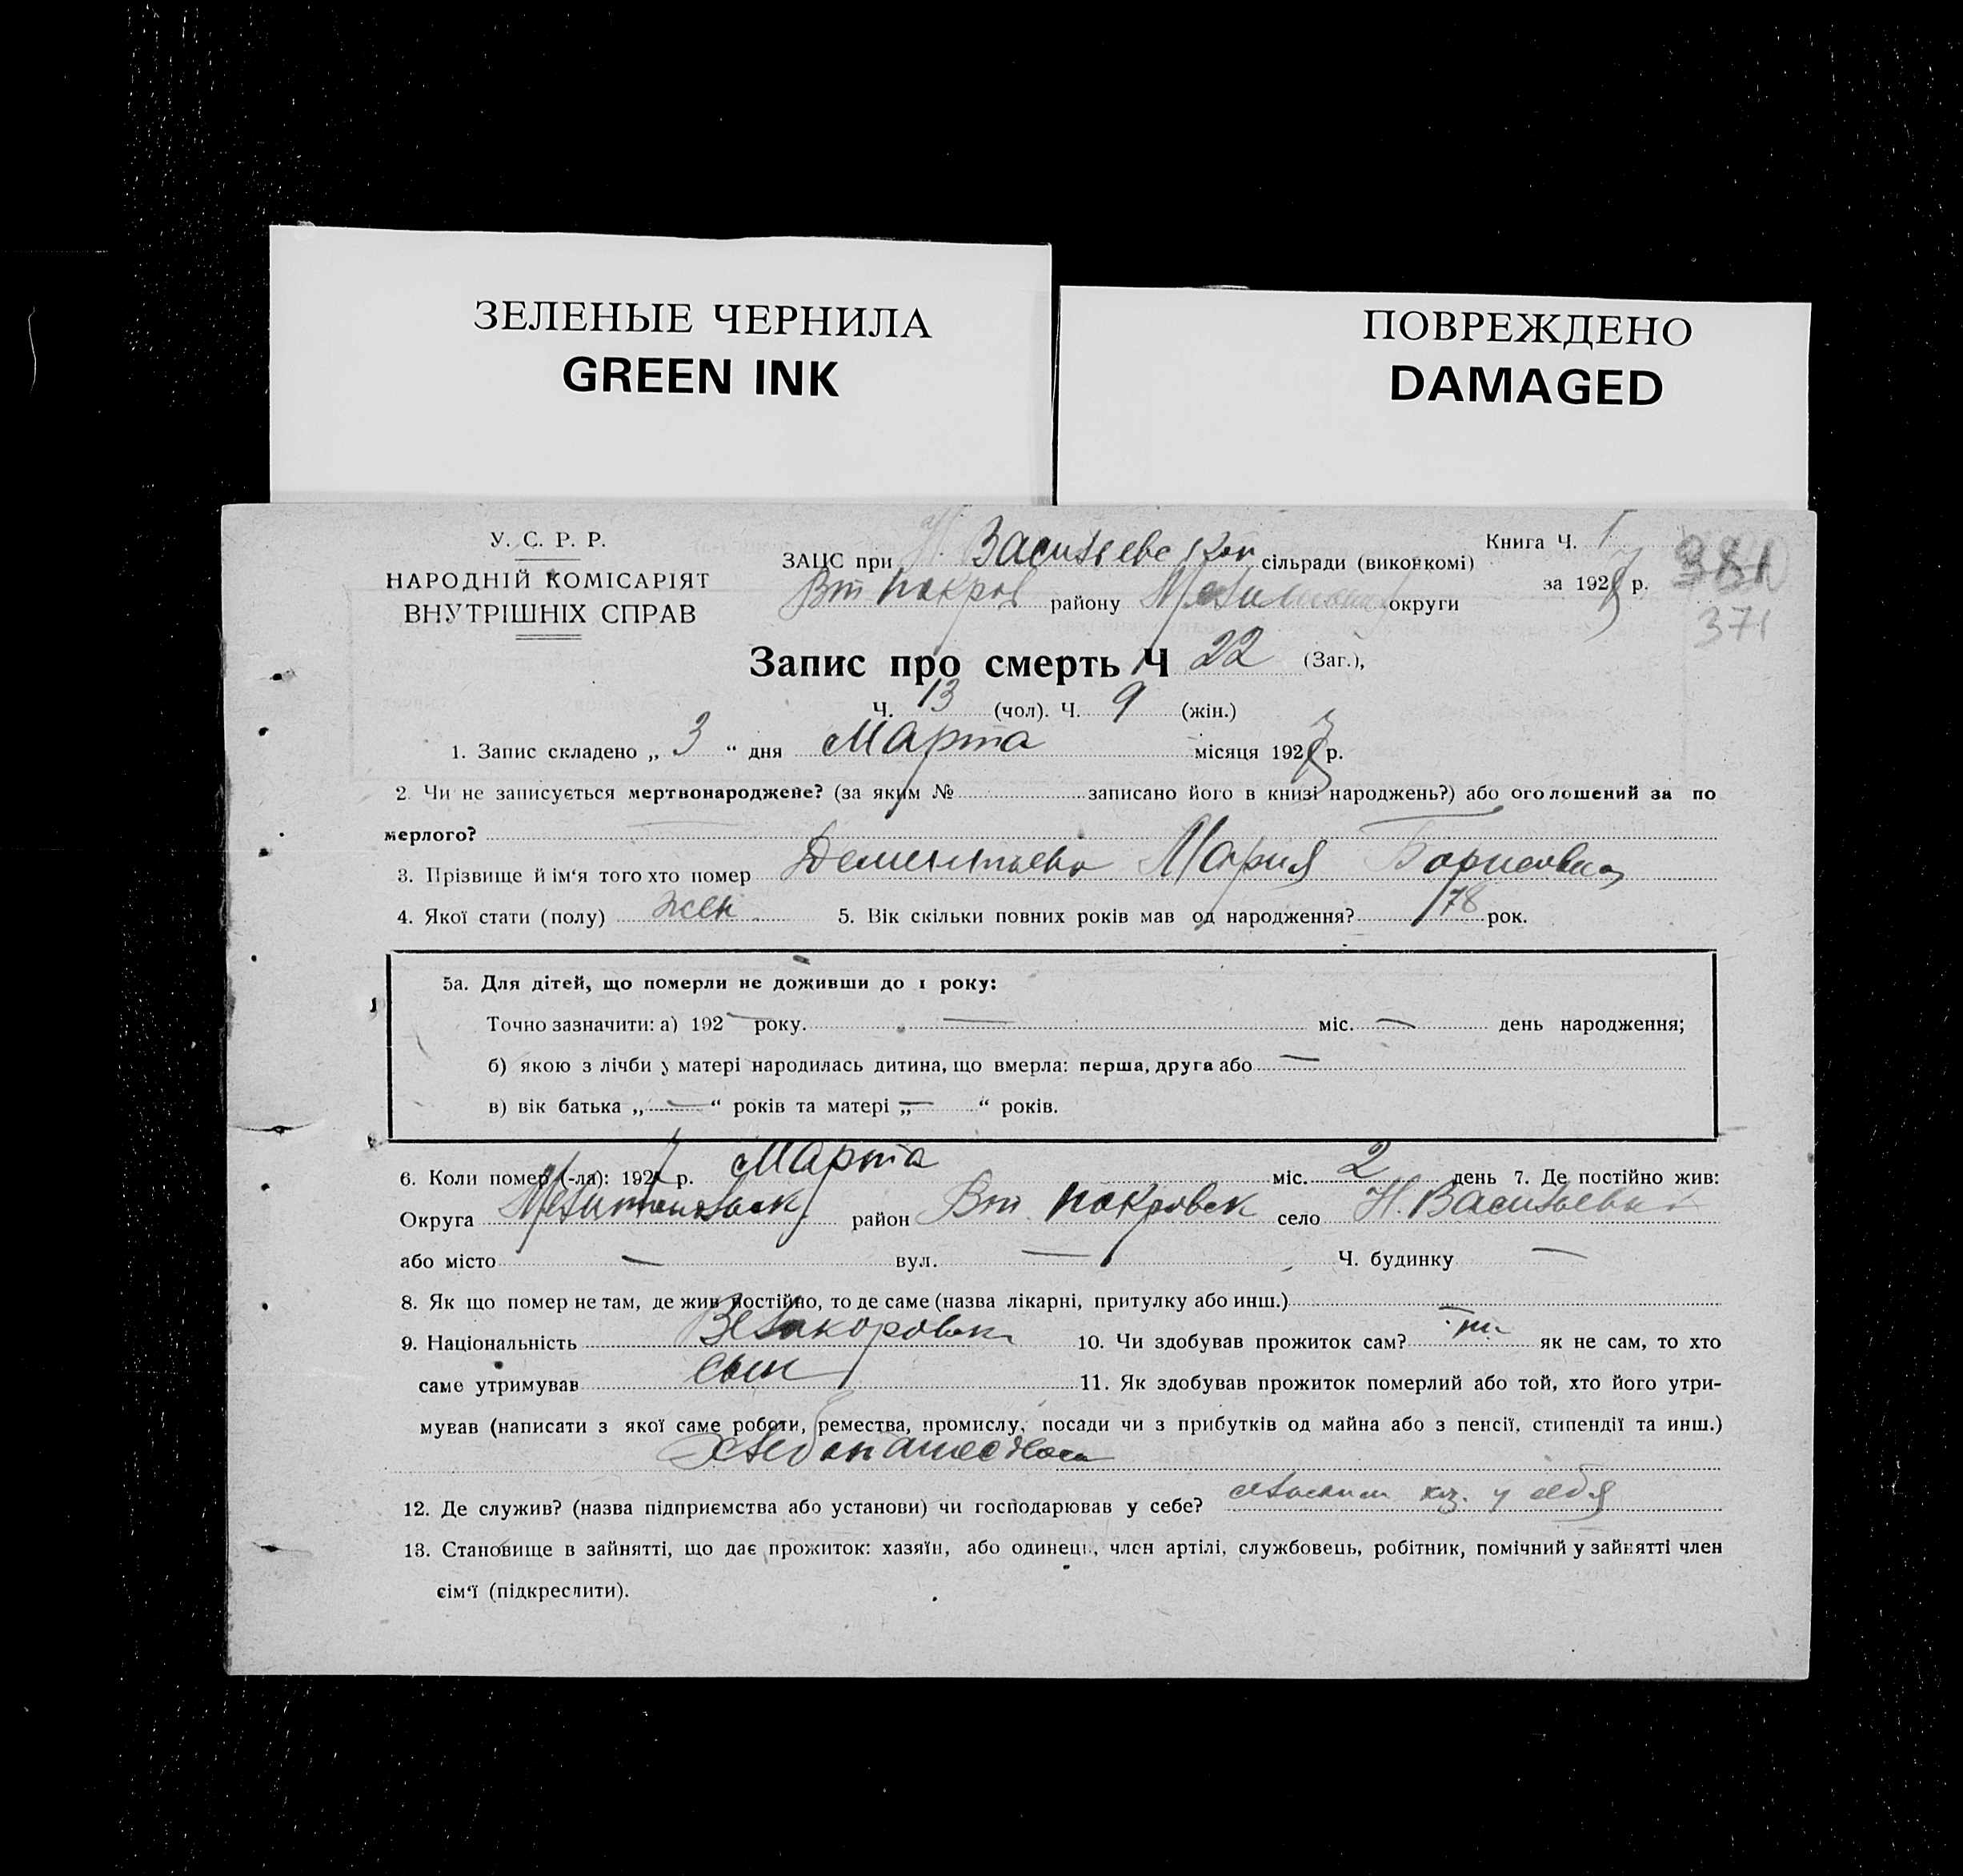 ЗЕЛЕНЫЕ ЧЕРНИЛА
GREEN INK
ПОВРЕЖДЕНО
DAMAGED
У. С. Р. Р.
НАРОДНІЙ КОМІСАРІЯТ
ВНУТРІШНІХ СПРАВ
ЗАЦС при Н. Васильевской сільради (виконкомі)
Вт Покров району округи
Книга Ч. I
за 1927 р.
381
371
Запис про смерть Ч 22 (Заг.),
Ч. 13 (чол). Ч. 9 (жін.)
1. Запис складено „ 3 “ дня Марта місяця 1927 р.
2. Чи не записується мертвонароджене? (за яким № записано його в книзі народжень?) або оголошений за по
мерлого?
3. Прізвище й ім'я того хто помер Дементьева Мария Борисовна
4. Якої стати (полу) жен. 5. Вік скільки повних років мав од народження? 78 рок.
5а. Для дітей, що померли не доживши до 1 року:
Точно зазначити: а) 192 — року. — міс. — день народження;
б) якою з лічби у матері народилась дитина, що вмерла: перша, друга або —
в) вік батька „ — “ років та матері „ — “ років.
6. Коли помер (-ла): 1927 р. Марта міс. 2 день 7. Де постійно жив:
Округа район Вт. Покровск село Н. Васильевка
або місто — вул. — Ч. будинку —
8. Як що помер не там, де жив постійно, то де саме (назва лікарні, притулку або инш.)
9. Національність 10. Чи здобував прожиток сам? як не сам, то хто
саме утримував сын 11. Як здобував прожиток померлий або той, хто його утри-
мував (написати з якої саме роботи, ремества, промислу, посади чи з прибутків од майна або з пенсії, стипендії та инш.)
12. Де служив? (назва підприємства або установи) чи господарював у себе? хоз. у себя
13. Становище в зайнятті, що дає прожиток: хазяїн, або одинець, член артілі, службовець, робітник, помічний у зайнятті член
сім'ї (підкреслити).